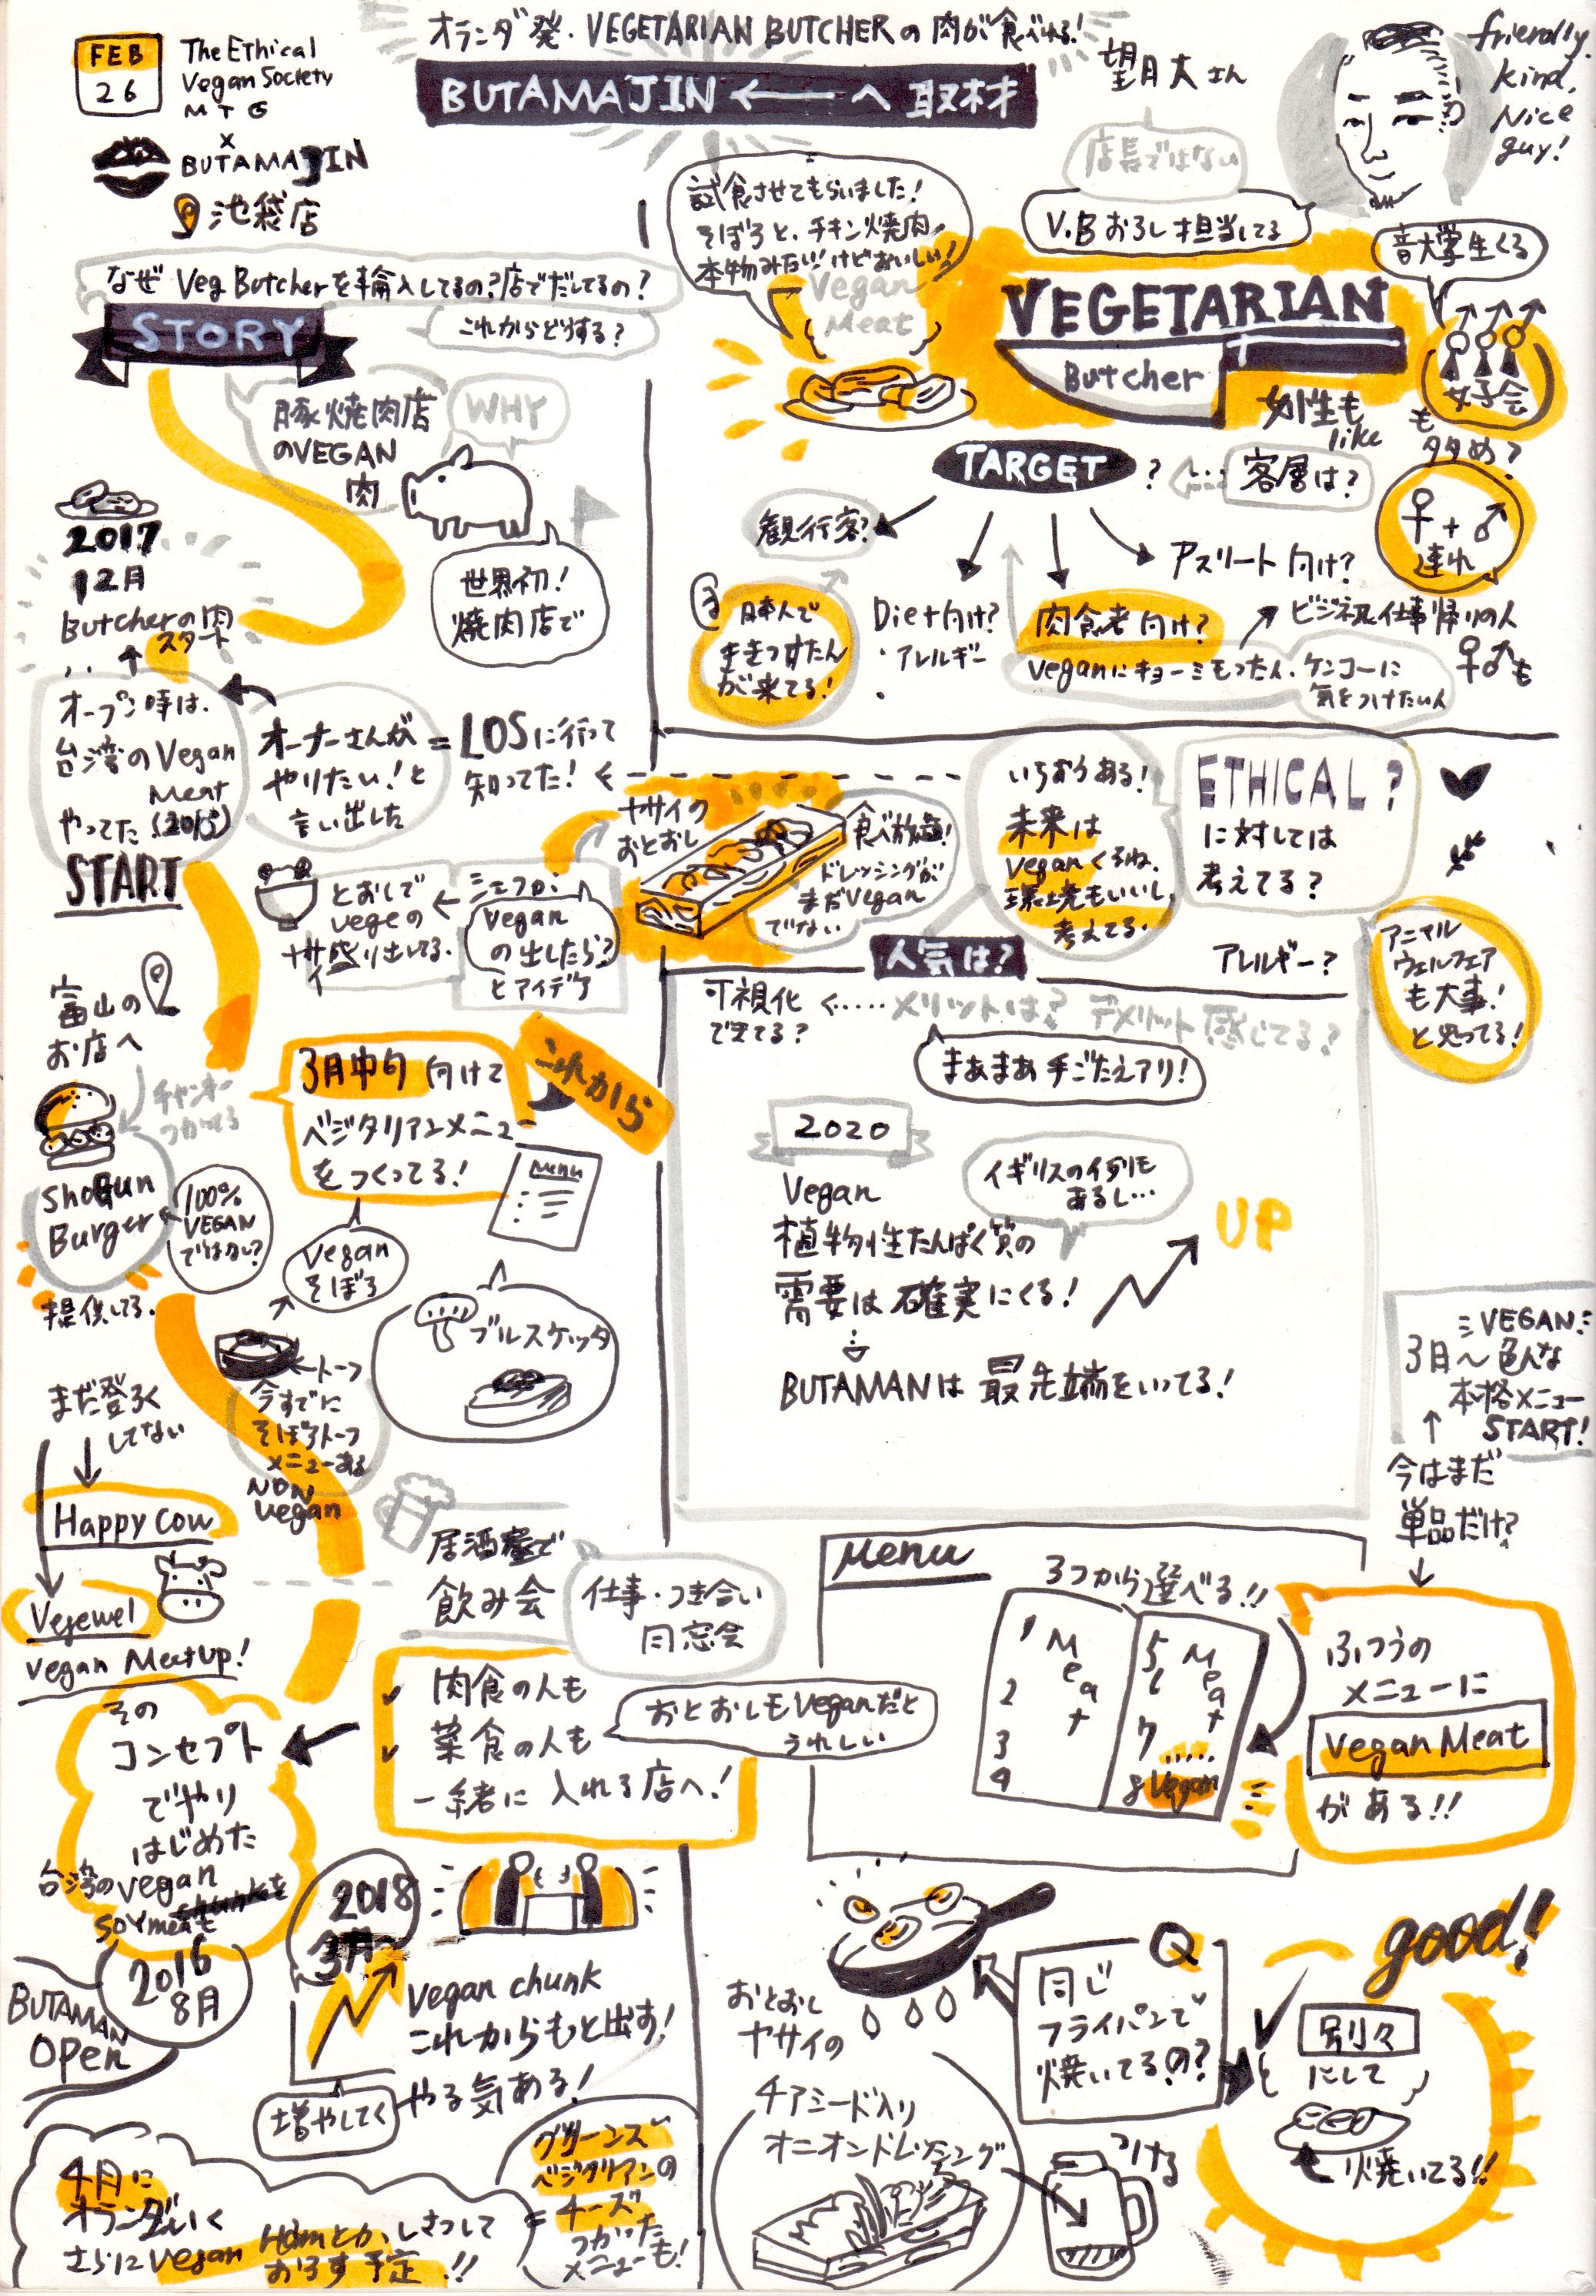 FEB
26
The Ethical
Vegan Society
MTG
×
BUTAMAJIN
池袋店
オランダ発・VEGETARIAN BUTCHERの肉が食べれる!
BUTAMAJIN ← へ取材
望月大さん
friendly.
kind,
Nice
guy!
店長ではない
V.Bおろし担当してる
試食させてもらいました!
そぼろと、チキン焼肉
本物みたい!けどおいしい!
Vegan
Meat
なぜ Veg Butcherを輸入してるの?店でだしてるの?
これからどうする?
STORY
VEGETARIAN
Butcher
音大学生くる
女子会
も
多め?
女性も
like
豚焼肉店
のVEGAN
肉
WHY
世界初!
焼肉店で
TARGET ?
客層は?
♀+♂
連れ
観行客?
日本人で
が来てる!
Diet向け?
・アレルギー
・
肉食者向け?
アスリート向け?
ビジネス仕事帰りの人
♀♂も
veganにキョーミもつた人、ケンコーに
気をつけたい人
2017
12月
Butcherの肉
スタート
オープン時は、
台湾のVegan
Meat
やってた(2015)
START
オーナーさんが
やりたい!と
言い出した
= LOSに行って
知ってた!
ヤサイの
おとおし
食べ放題!
ドレッシングが
まだVegan
でない
シェフが
Vegan
の出したら?
とアイデア
とおしで
vegeの
ヤサイ盛り出してる.
いちおうある!
未来は
veganくるね.
環境もいいし,
考えてる.
ETHICAL?
に対しては
考えてる?
アニマル
ウェルフェア
も大事!
と思ってる!
人気は?
アレルギー?
可視化
できてる?
メリットは? デメリット感じてる?
まあまあ手ごたえアリ!
2020
Vegan
植物性たんぱく質の
需要は確実にくる!
イギリスの例も
あるし…
UP
BUTAMANは最先端をいってる!
富山の
お店へ
チャンキー
つかってる
ShoGun
Burger
100%
VEGAN
ではない?
提供してる.
これから
3月中旬向けて
ベジタリアンメニュー
をつくってる!
Menu
Vegan
そぼろ
ブルスケッタ
トーフ
今すでに
そぼろトーフ
メニューある
NON
Vegan
まだ登ろく
してない
Happy Cow
Vegewel
Vegan Meetup!
VEGAN
3月〜色んな
本格メニュー
START!
今はまだ
単品だけ?
居酒屋で
飲み会
仕事・つき合い
同窓会
肉食の人も
菜食の人も
一緒に入れる店へ!
おとおしもVeganだと
うれしい
その
コンセプト
でやり
はじめた
台湾のvegan
soy meat
2016
8月
BUTAMAN
OPen
Menu
3つから選べる!!
1 Meat
2
3
4
5 Meat
6
7 .....
8 Vegan
ふつうの
メニューに
Vegan Meat
がある!!
2018
3月〜
Vegan chunk
これからもっと出す!
やる気ある!
増やしてく
おとおし
ヤサイの
Q
同じ
フライパンで
焼いてるの?
good!
別々
にして
焼いてる!!
チアシード入り
オニオンドレッシング
つける
4月に
オランダいく
さらにVegan Hamとか、しさつして
おろす予定!!
グリーンズ
ベジタリアンの
チーズ
つかった
メニューも!